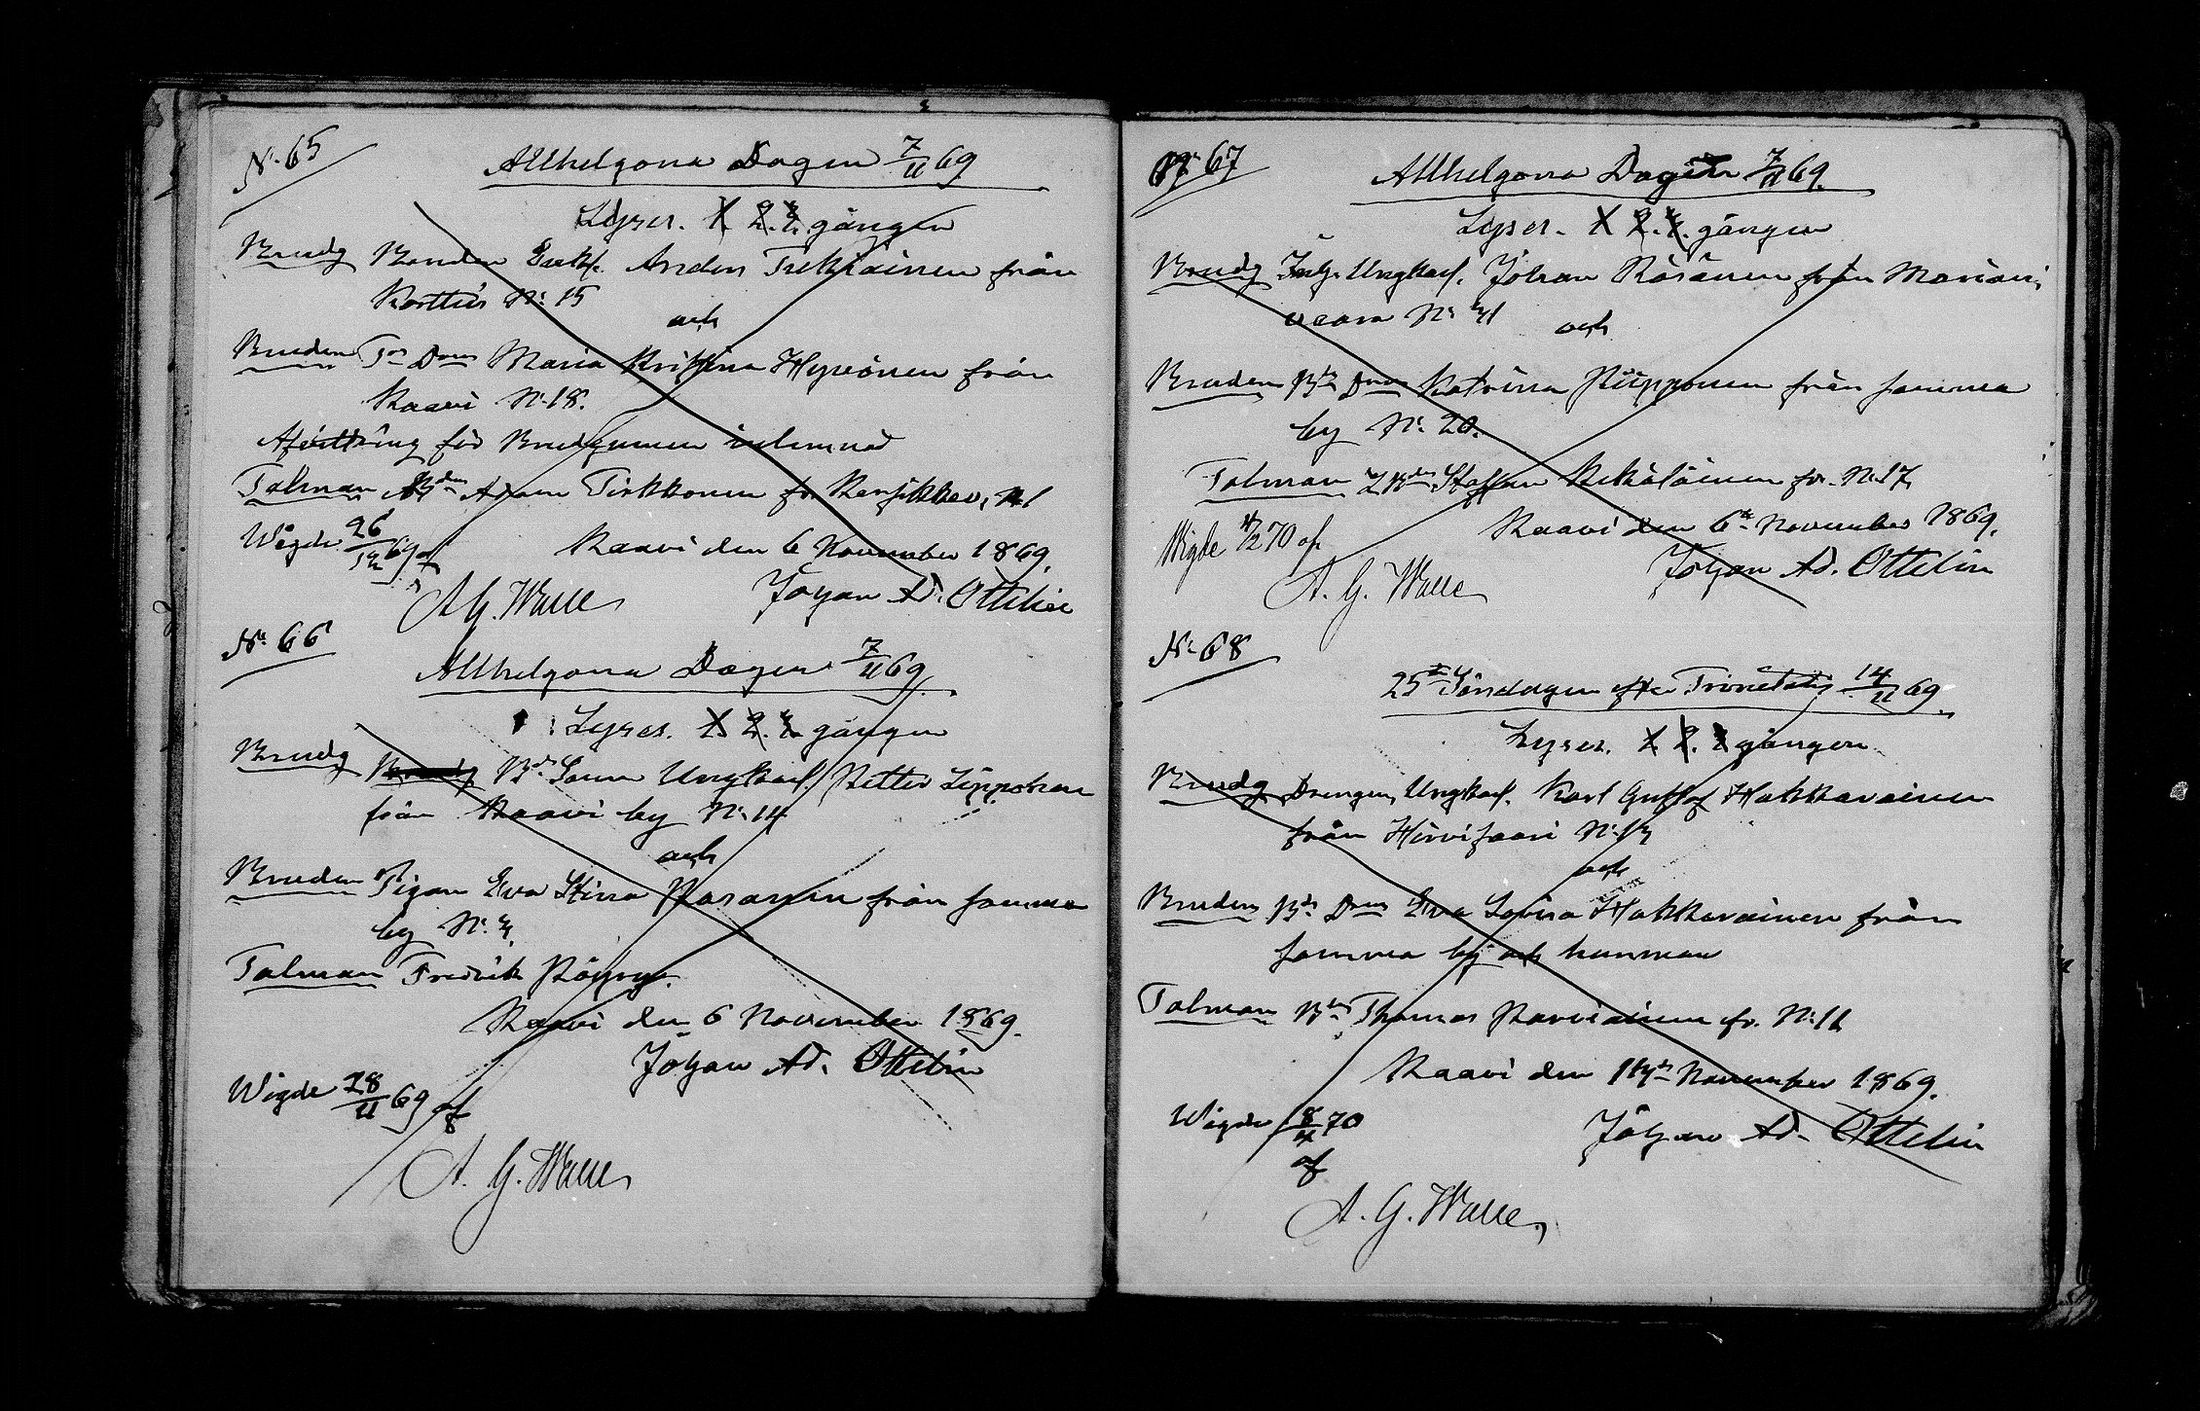 N: 65
Allhelgona Dagen 7/11 69
Lyses. 1. 2. 3. gången
Brudg Bonden Enkl. Anders Tirkkoinen från
Korttis N: 15
och
Bruden Ts Dotn Maria Kristina Hyvönen från
Kaavi N: 18.
Afvittring för Brudgumen inlemnad
Talman Bden Adam Tirkkonen fr. N: 1
Wigde 26/12 69 af
Kaavi den 6 November 1869.
A G. Walle
Johan Ad. Ottelin
N: 66
Allhelgona Dagen 7/11 69
Lyses. 1. 2. 3. gången
Brudg Bd. Sonen Ungkarl. Petter Lipponen
från Kaavi by N: 14
och
Bruden Pigan Eva Stina Pasanen från samma
by N: 3.
Talman Fredrik
Kaavi den 6 November 1869.
Johan Ad. Ottelin
Wigde 28/11 69 af
A. G. Walle
N: 67
Allhelgona Dagen 7/11 69.
Lyses. 1 2. 3. gången
Brudg Inh. Ungkarl. Johan Räsänen från Mariani
vaara N: 31
och
Bruden Bds Dotn Katrina Piipponen från samma
by N: 20.
Talman Bden Staffan fr. N: 17
Kaavi den 6te November 1869.
Wigde 4/2 70 af
Johan Ad. Ottelin
A. G. Walle
N: 68
25te Söndagen efter Trinitatis 14/11 69.
Lyses. 1 2. 3 gången
Brudg Drengen, Ungkarl. Karl Gustaf Hakkarainen
från Hirvisaari N: 13
och
Bruden Bds Dotn Eva Lovisa Hakkarainen från
samma by och numman
Talman Bden Thomas Parviainen fr. N: 11
Kaavi den 13de November 1869.
Wigde 8/4 70
Johan Ad. Ottelin
af
A. G. Walle